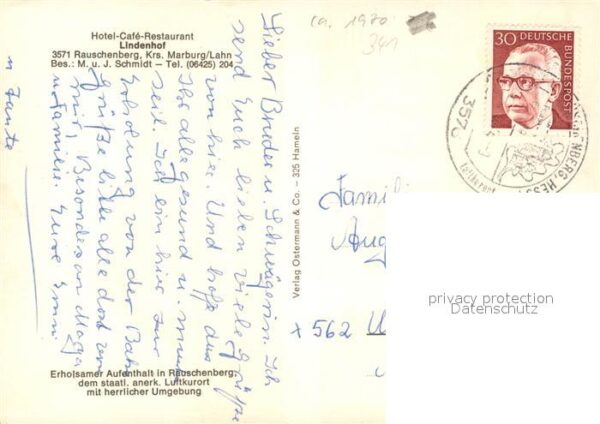 Hotel-Café-Restaurant
Lindenhof
3571 Rauschenberg, Krs. Marburg/Lahn
Bes.: M. u. J. Schmidt – Tel. (06425) 204
Lieber Bruder u. Schwägerin. Ich
send Euch lieben viele Grüße
von hier. Und hoffe das
Ihr alle gesund u. munter
seit. Ich bin hier zur
Erholung von der Bahn
Grüße bitte alle dort von
mir, Besonders an
u Familie. Eure
u Tante
Erholsamer Aufenthalt in Rauschenberg,
dem staatl. anerk. Luftkurort
mit herrlicher Umgebung
Verlag Ostermann & Co. – 325 Hameln
ca. 1970
341
30 DEUTSCHE
BUNDESPOST
357
RAUSCHENBERG, HESS
Luftkurort
Famili
Aug
x 562
privacy protection
Datenschutz